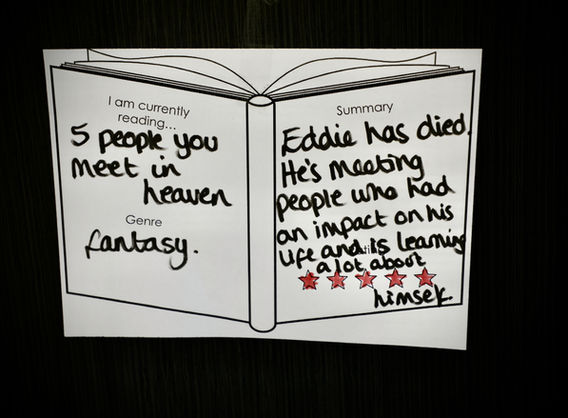 I am currently
reading...
5 people you
meet in
heaven
Genre
fantasy.
Summary
Eddie has died.
He's meeting
people who had
an impact on his
life and is learning
a lot about
himself.